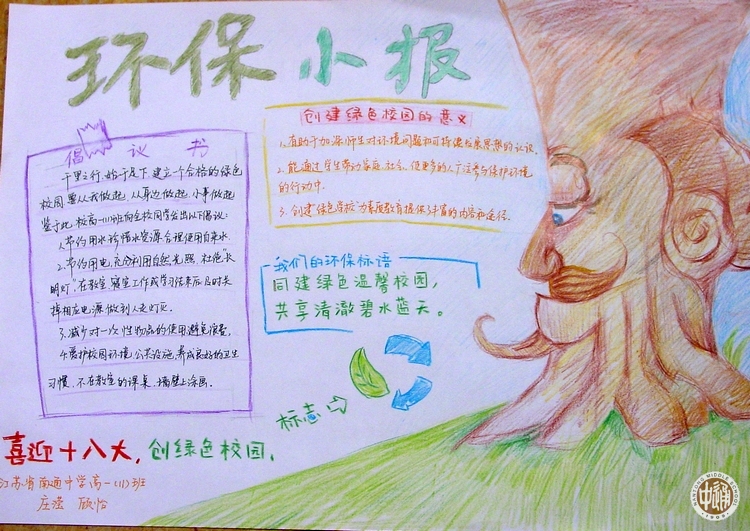 环保小报
倡议书
千里之行，始于足下，建立一个合格的绿色
校园要从我做起，从身边做起，小事做起
鉴于此，校高一(1)班向全校同学发出以下倡议：
1.节约用水珍惜水资源，合理使用自来水。
2.节约用电，充分利用自然光照，杜绝“长
明灯”在教室寝室工作或学习结束后及时关
掉相应电源，做到人走灯灭。
3.减少对一次性物品的使用避免浪费。
4.爱护校园环境，公共设施，养成良好的卫生
习惯，不在教室的课桌、墙壁上涂画。
创建绿色校园的意义
1.有助于加深师生对环境问题和可持续发展思想的认识。
2.能通过学生带动家庭、社会，使更多的人广泛参与保护环境
的行动中.
3.创建“绿色学校”为素质教育提供丰富的内容和途径。
我们的环保标语
同建绿色温馨校园，
共享清澈碧水蓝天。
标志⇨
喜迎十八大，创绿色校园，
江苏省南通中学高一(1)班
庄滢 欣怡
NANTONG MIDDLE SCHOOL
中通
1909